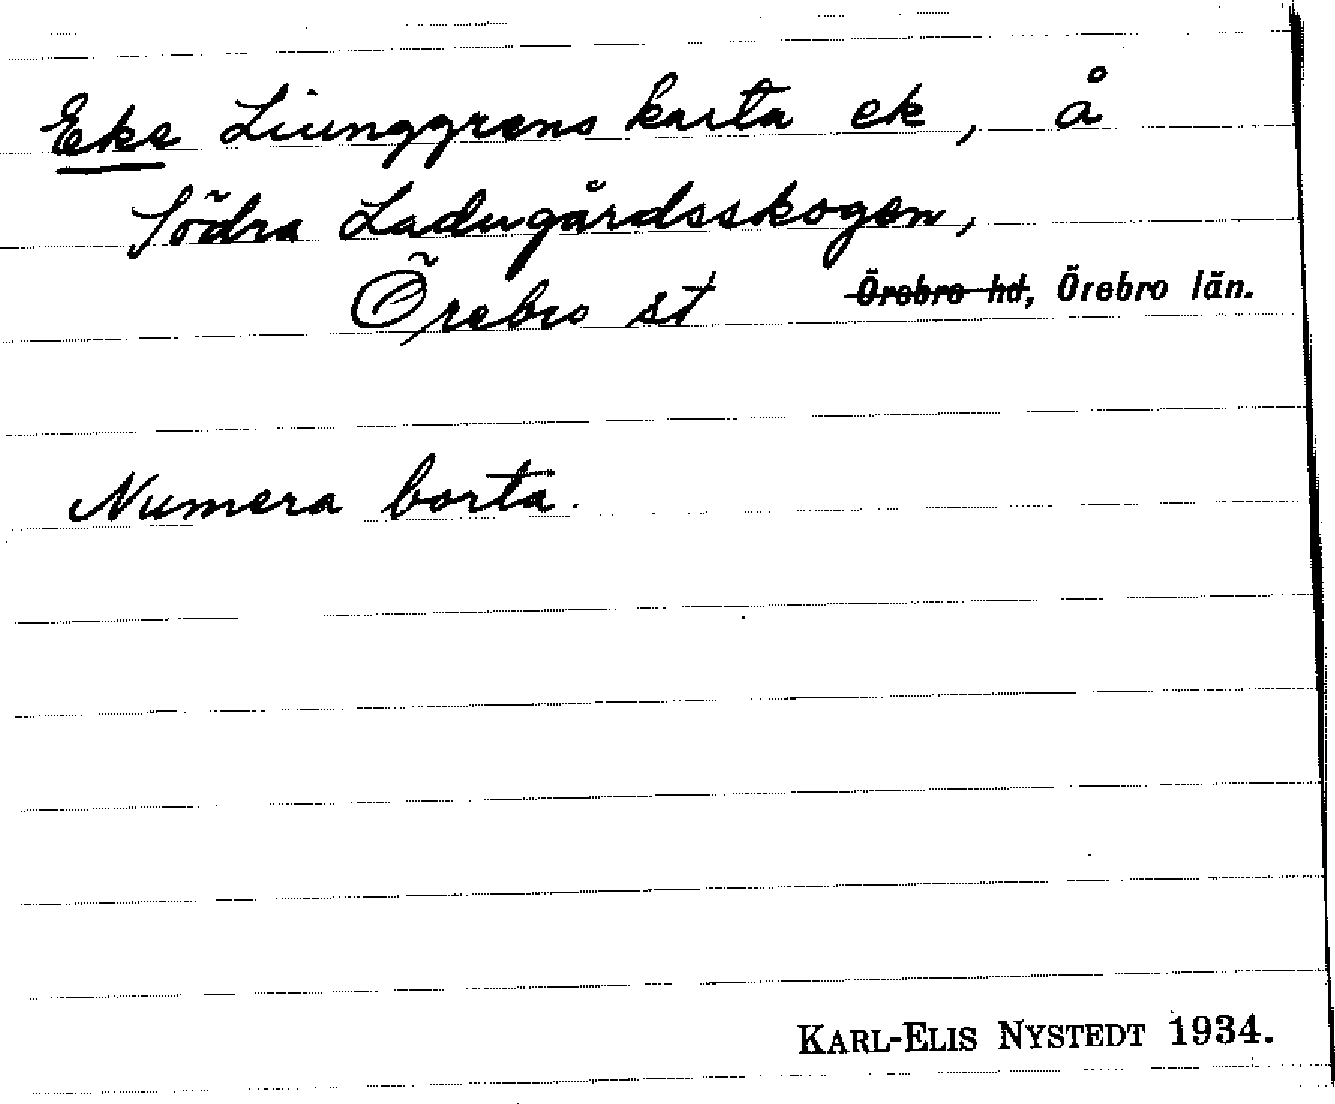 Eke Liunggrens karta ek, å
Södra Ladugårdsskogen,
Örebro st Örebro hd, Örebro län.
Numera borta.
KARL-ELIS NYSTEDT 1934.